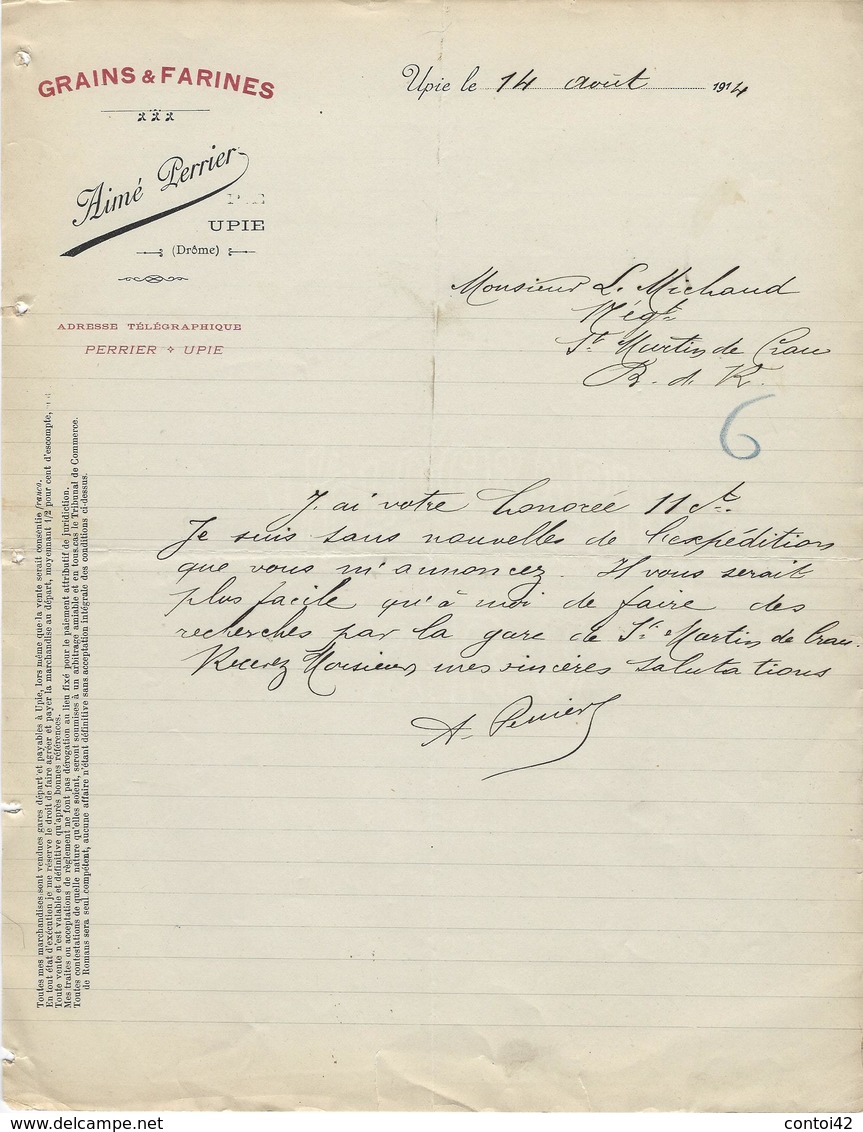 GRAINS & FARINES
Aimé Perrier
UPIE
(Drôme)
ADRESSE TÉLÉGRAPHIQUE
PERRIER UPIE
Upie le 14 août 1914
Monsieur L. Michaud
Négt
St Martin de Crau
B. d. R.
6
J'ai votre honorée 11 ct.
Je suis sans nouvelles de l'expédition
que vous m'annoncez. Il vous serait
plus facile qu'à moi de faire des
recherches par la gare de St Martin de Crau.
Recevez Monsieur mes sincères salutations
A. Perrier
Toutes mes marchandises sont vendues gares départ et payables à Upie, lors même que la vente serait consentie franco.
En tout état d'exécution je me réserve le droit de faire agréer et payer la marchandise au départ, moyennant 1/2 pour cent d'escompte,
Toute vente n'est valable et définitive qu'après bonnes références.
Mes traites ou acceptations de règlement ne font pas dérogation au lieu fixé pour le paiement attributif de juridiction.
Toutes contestations de quelle nature qu'elles soient, seront soumises à un arbitrage amiable et en tous cas le Tribunal de Commerce
de Romans sera seul compétent, aucune affaire n'étant définitive sans acceptation intégrale des conditions ci-dessus.
www.delcampe.net
contoi42